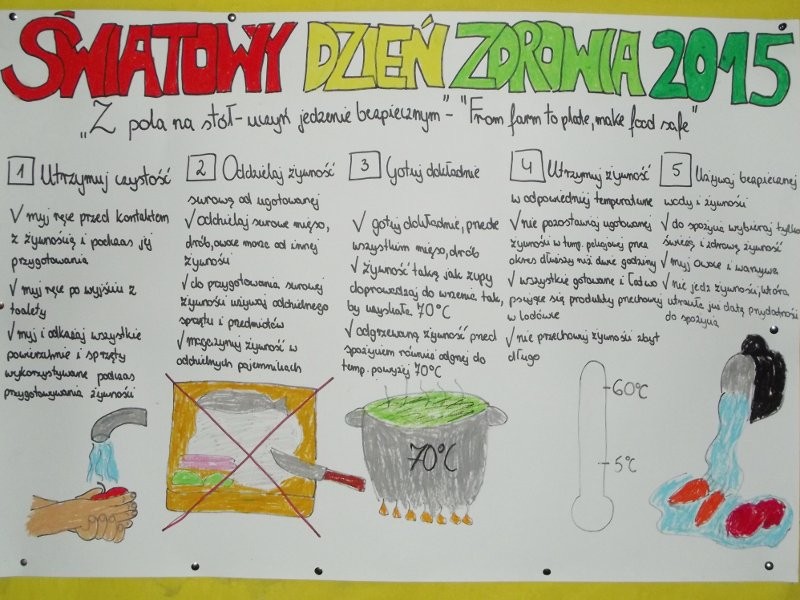 ŚWIATOWY DZIEŃ ZDROWIA 2015
„Z pola na stół - uczyń jedzenie bezpiecznym" - "From farm to plate, make food safe"
1 Utrzymuj czystość
√ myj ręce przed kontaktem
z żywnością i podczas jej
przygotowania
√ myj ręce po wyjściu z
toalety
√ myj i odkażaj wszystkie
powierzchnie i sprzęty
wykorzystywane podczas
przygotowywania żywności
2 Oddzielaj żywność
surową od ugotowanej
√ oddzielaj surowe mięso,
drób, owoce morza od innej
żywności
√ do przygotowania surowej
żywności używaj oddzielnego
sprzętu i przedmiotów
√ magazynuj żywność w
oddzielnych pojemnikach
3 Gotuj dokładnie
√ gotuj dokładnie, przede
wszystkim mięso, drób
√ żywność taką jak zupy
doprowadzaj do wrzenia tak,
by uzyskała 70°C
√ odgrzewaną żywność przed
spożyciem również odgrzej do
temp. powyżej 70°C
4 Utrzymuj żywność
w odpowiedniej temperaturze
√ nie pozostawiaj ugotowanej
żywności w temp. pokojowej przez
okres dłuższy niż dwie godziny
√ wszystkie gotowane i łatwo
psujące się produkty przechowuj
w lodówce
√ nie przechowuj żywności zbyt
długo
5 Używaj bezpiecznej
wody i żywności
√ do spożycia wybieraj tylko
świeżą i zdrową żywność
√ myj owoce i warzywa
√ nie jedz żywności, która
utraciła już datę przydatności
do spożycia
70°C
60°C
5°C